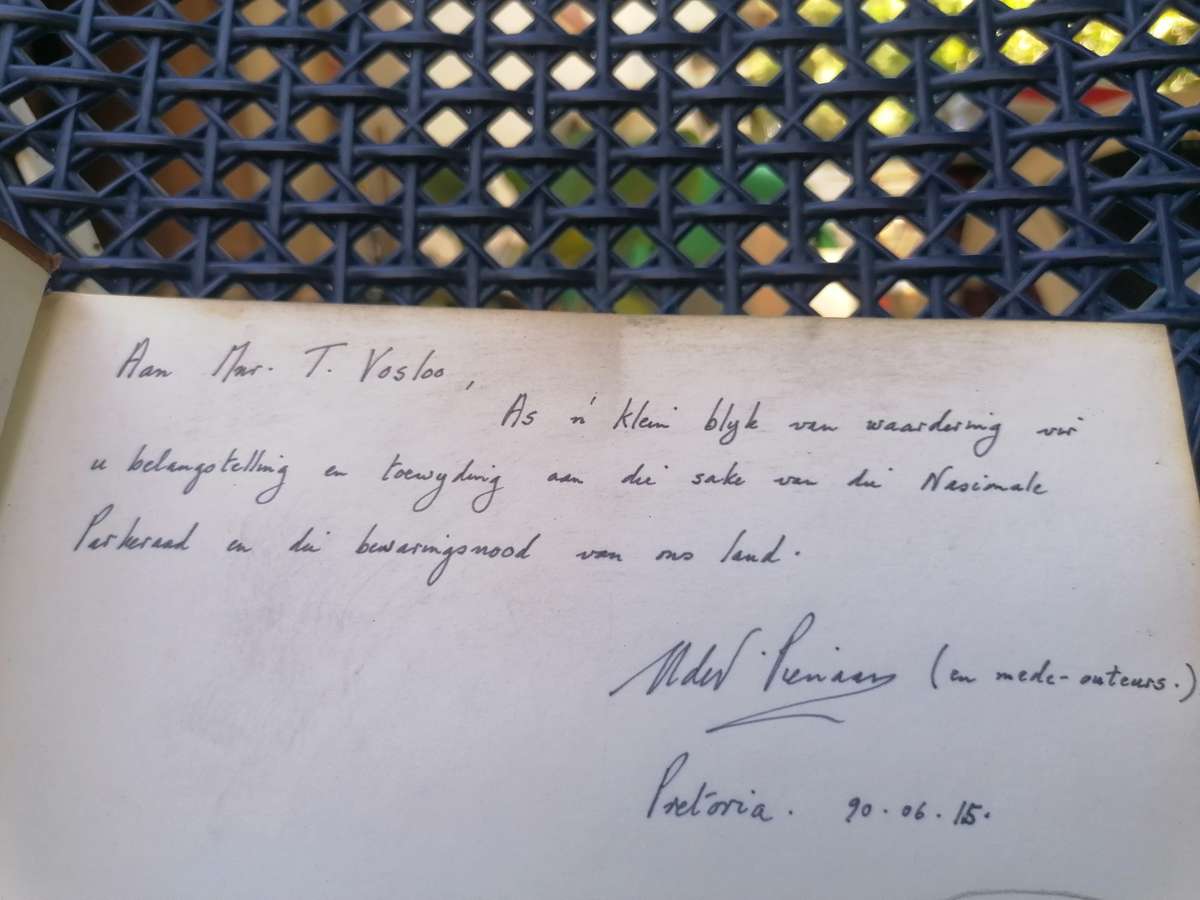 Aan Mnr. T. Vosloo,
As 'n klein blyk van waardering vir
u belangstelling en toewyding aan die sake van die Nasionale
Parkeraad en die bewaringsnood van ons land.
U de V. Pienaar (en mede-outeurs.)
Pretoria. 90.06.15.